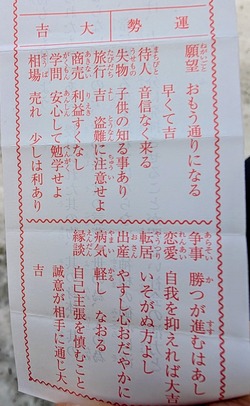 運勢 大吉
願望 おもう通りになる
早くて吉
待人 音信なく来る
失物 子供の知る事あり
旅行 吉 盗難に注意せよ
商売 利益すくなし
学問 安心して勉学せよ
相場 売れ 少しは利あり
争事 勝つが進むはあし
恋愛 自我を抑えれば大吉
転居 いそがぬ方よし
出産 やすし心おだやかに
病気 軽し なおる
縁談 自己主張を慎むこと
誠意が相手に通じ大
吉